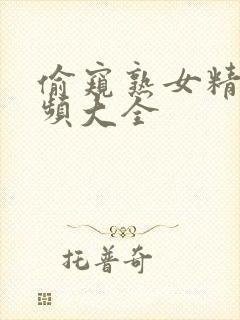 偷窥熟女精
频大全
托普奇